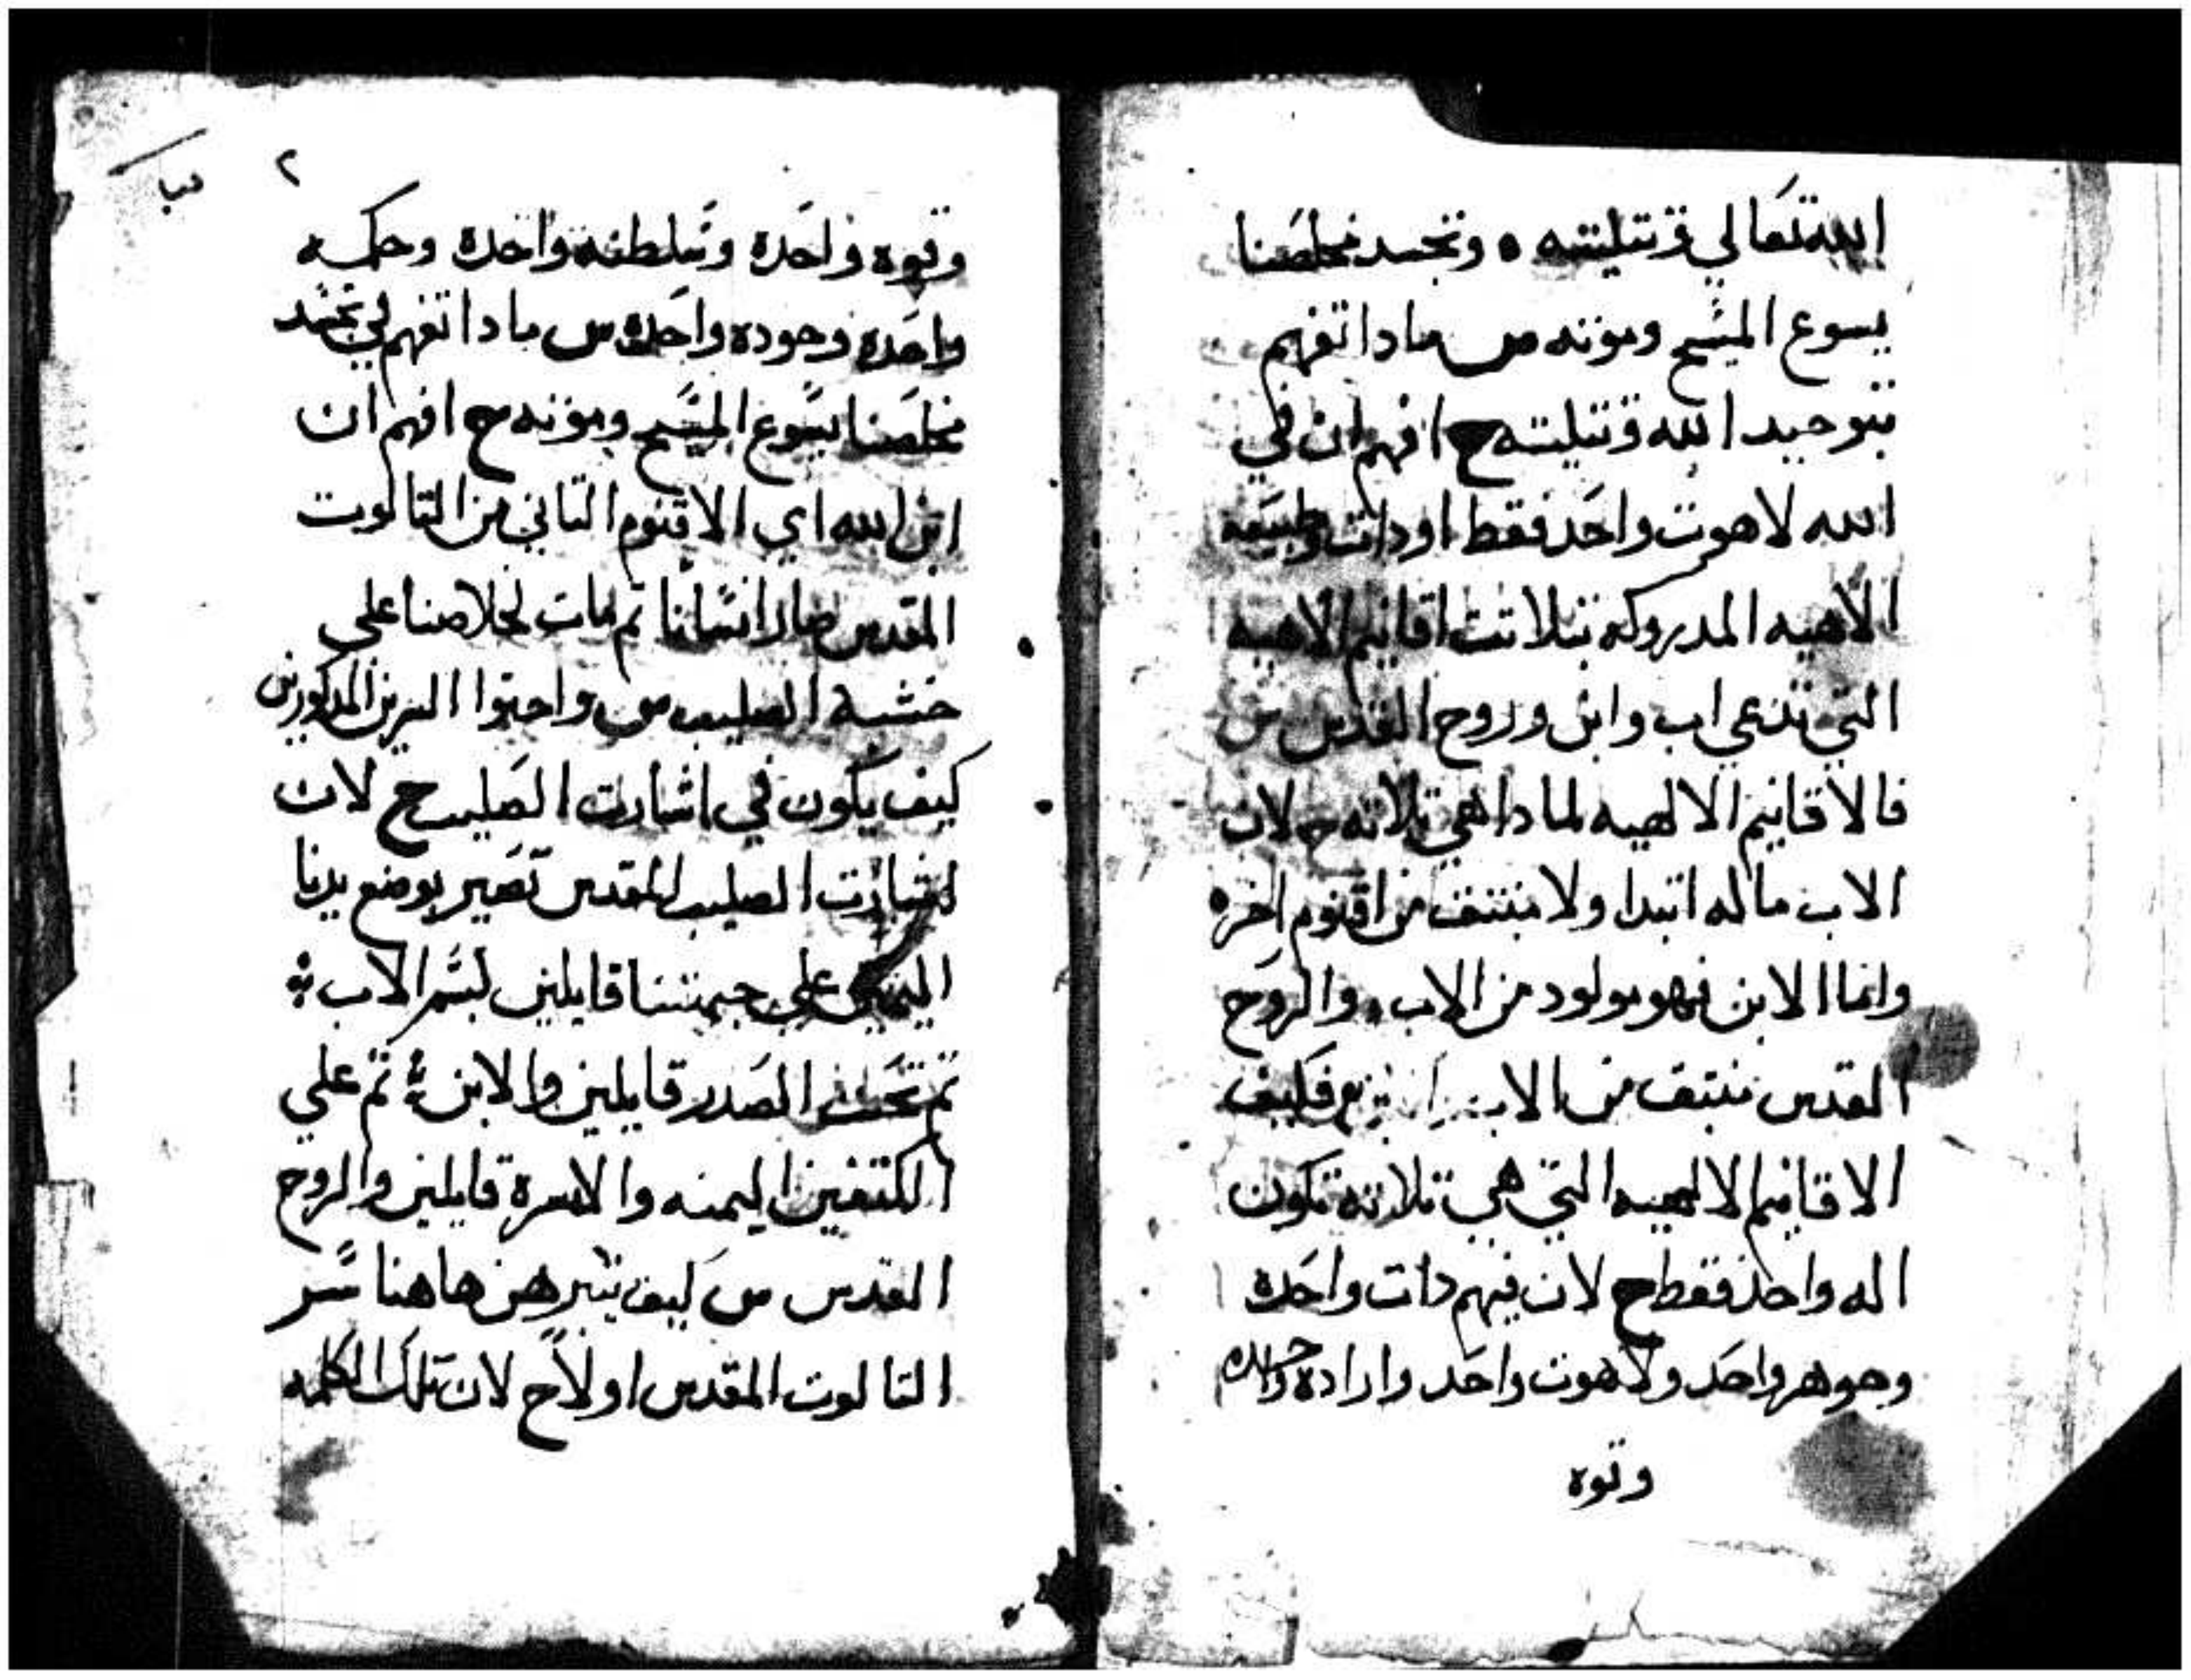 الله تعالي وتتليته ه وتجسد مخلصنا
يسوع المسيح وموته س مادا تفهم
بتوحيد الله وتتليته ج افهم ان في
الله لاهوت واحد فقط او دات وطبيعه
الاهيه المدروكه بتلاتت اقانيم الاهيه
التي تدعي اب وابن وروح القدس س
فالاقانيم الالهيه لمادا هي تلاته ج لان
الاب ماله ابتدا ولا منبتق من اقنوم اخره
وانما الابن فهو مولود من الاب والروح
القدس منبتق من الاب فكيف
الاقانيم الالهيه التي هي تلاته تكون
اله واحد فقط ج لان فيهم دات واحده
وجوهر واحد ولاهوت واحد وارادة واحده
وقوه
٢
وقوه واحده وسلطنه واحده وحكمه
واحده وجوده واحده س مادا تفهم في تجسد
مخلصنا يسوع المسيح وموته ج افهم ان
ابن الله اي الاقنوم التاني من التالوت
المقدس صار انسانا تم مات لخلاصنا علي
خشبة الصليب س واحتوا السرين المدكورين
كيف يكون في اشارت الصليب ج لان
اشارت الصليب المقدس تصير بوضع يدنا
اليمين علي جبهتنا قايلين بسم الاب
تم تحت الصدر قايلين والابن تم علي
الكتفين اليمنه والايسرة قايلين والروح
القدس س كيف يتبرهن هاهنا سر
التالوت المقدس اولاً ج لان تلك الكلمه